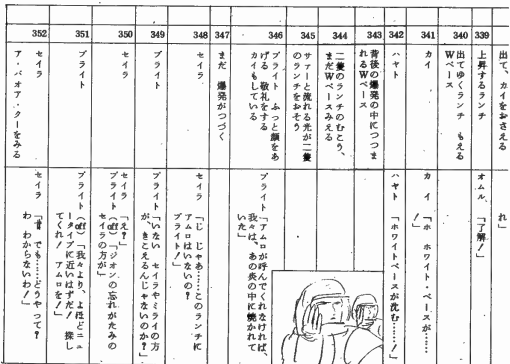 出て、カイをおさえる
れ」
339
上昇するランチ
オムル「了解!」
340
出てゆくランチ もえる
Wベース
341
カイ
カイ「ホ ホワイト・ベースが……
!」
342
ハヤト
ハヤト「ホワイトベースが沈む……!」
343
背後の爆発の中につつま
れるWベース
344
二隻のランチのむこう、
まだWベースみえる
345
サァーと流れる光が二隻
のランチをおそう
346
ブライト ふっと顔をあ
げる 敬礼をする
カイもしている
ブライト「アムロが呼んでくれなければ、
我々は、あの炎の中に焼かれて
いた」
347
まだ 爆発がつづく
348
セイラ
セイラ「じ じゃあ……このランチに
アムロはいないの?
ブライト!」
349
ブライト
ブライト「いない セイラやミライの方
が、きこえるんじゃないのか?」
350
セイラ
セイラ「え?」
ブライト(off)「ジオンの忘れがたみの
セイラの方が」
351
ブライト
ブライト(off)「我々より、よほどニュ
ータイプに近いはずだ! 探し
てくれ! アムロを!」
352
セイラ
ア・バオア・クーをみる
セイラ「でも……どうやって?
わ わからないわ!」